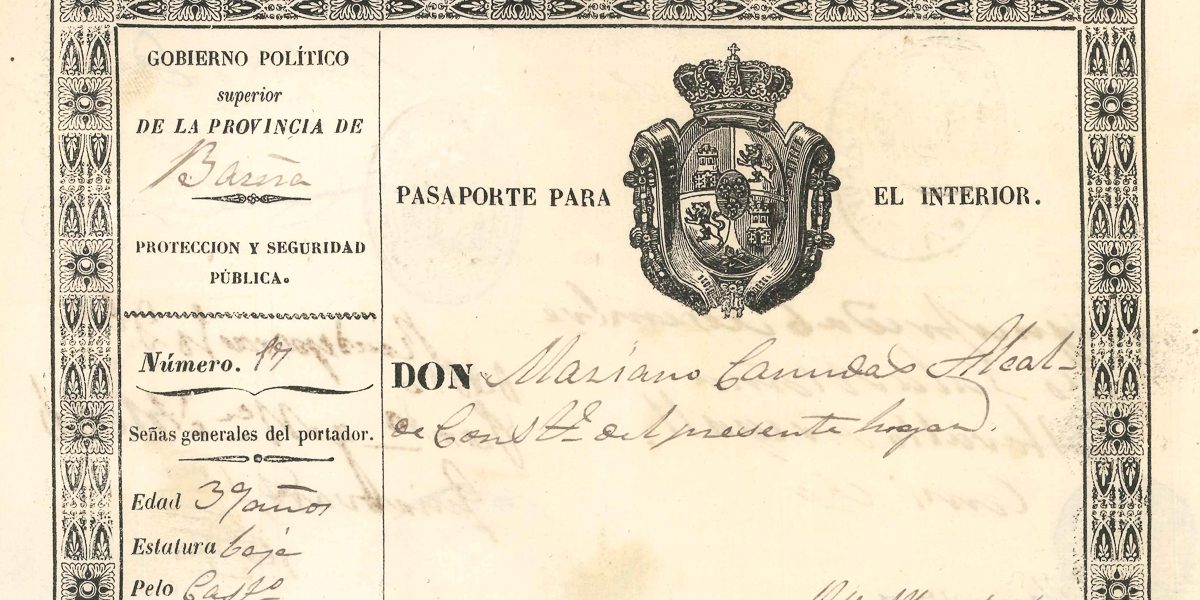 GOBIERNO POLÍTICO
superior
DE LA PROVINCIA DE
Barna
PROTECCION Y SEGURIDAD
PÚBLICA.
Número. 17
Señas generales del portador.
Edad 39 años
Estatura baja
Pelo Casto
PASAPORTE PARA EL INTERIOR.
DON Mariano Canudas Alcal-
de Const.l del presente